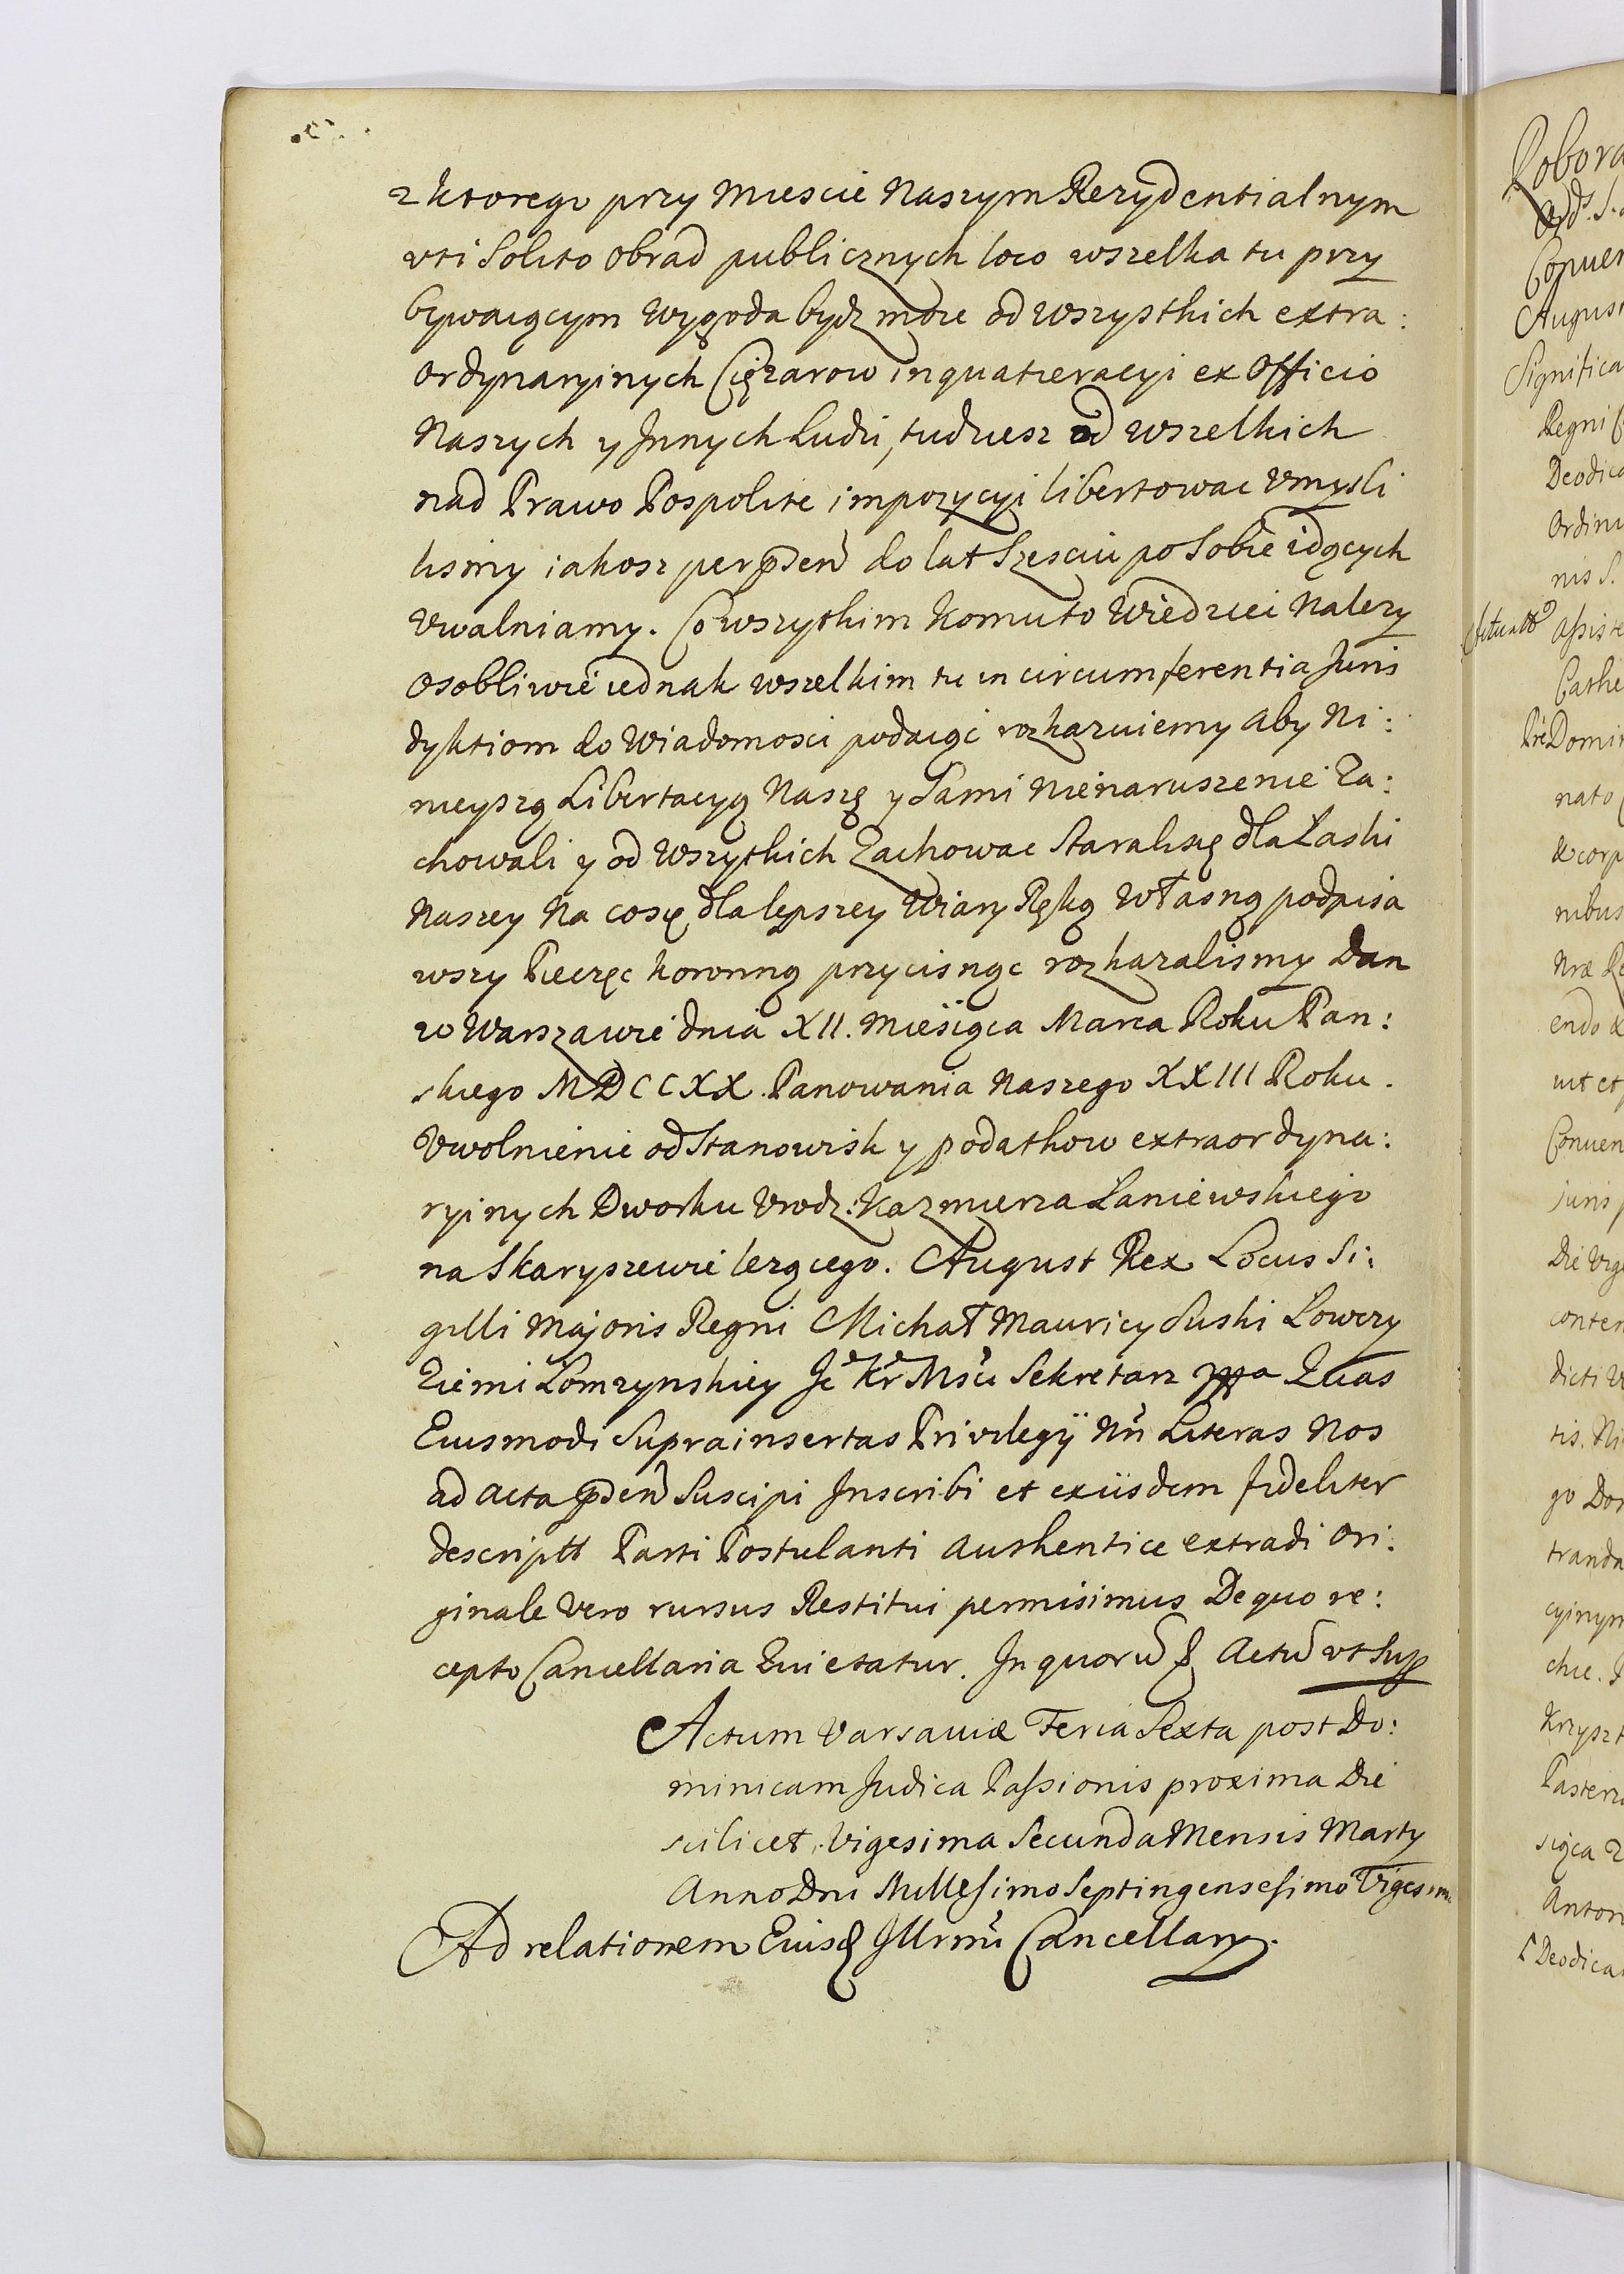 z ktorego przy Miescie Naszym Rezydentialnym
vti Solito Obrad publicznych loco wszelka tu przy
bywaiącym Wygoda bydz może od wszystkich extra:
ordynaryinych Ciężarow inquatieracyi ex Officio
Naszych y Innych Ludzi, tudziesz od wszelkich
nad Prawo Pospolite impozycyi libertowac Vmysli
lismy iakosz per pñsen do lat Szesciu po Sobie idących
Vwalniamy. Co wszytkim Komu to Wiedziec Nalezy
Osobliwie iednak wszelkim tu in circumferentia Juris
dyktiom do Wiadomosci podaiąc rozkazuiemy aby Ni:
nieyszą Libertacyą Naszę y Sami Nienaruszenie Za:
chowali y od Wszytkich Zachowac Starali się dla Łaski
Naszey Na co się dla lepszey Wiary Ręką Własną podpisa
wszy Pieczęc koronną przycisnąc rozkazalismy Dan
w Warszawie dnia XII. Miesiąca Marca Roku Pan:
skiego MDCCXX. Panowania Naszego XXIII Roku.
Vwolnienie od Stanowisk y podatkow extraordyna:
ryinych Dworku Vrodz: Kazmierza Łaniewskiego
na Skaryszewie lezącego. August Rex Locus Si:
gilli Majoris Regni Michał Mauricy Suski Łowczy
Ziemi Łomzynskiey Je Kr Msci Sekretarz mpa Quas
Eiusmodi Suprainsertas Privilegij Nri Literas Nos
ad Acta pñsen Suscipi Inscribi et exiisdem fideliter
descriptt Parti Postulanti authentice extradi Ori:
ginale Vero rursus Restitui permisimus De quo re:
cepto Cancellaria Quietatur. In quorũ & Actũ vt Sup
Actum Varsaviæ Feria Sexta post Do:
minicam Judica Passionis proxima Die
scilicet Vigesima Secunda Mensis Martij
Anno Dni Millesimo Septingensesimo Vigesim.
Ad relationem Eiusd Illrmi Cancellarij.